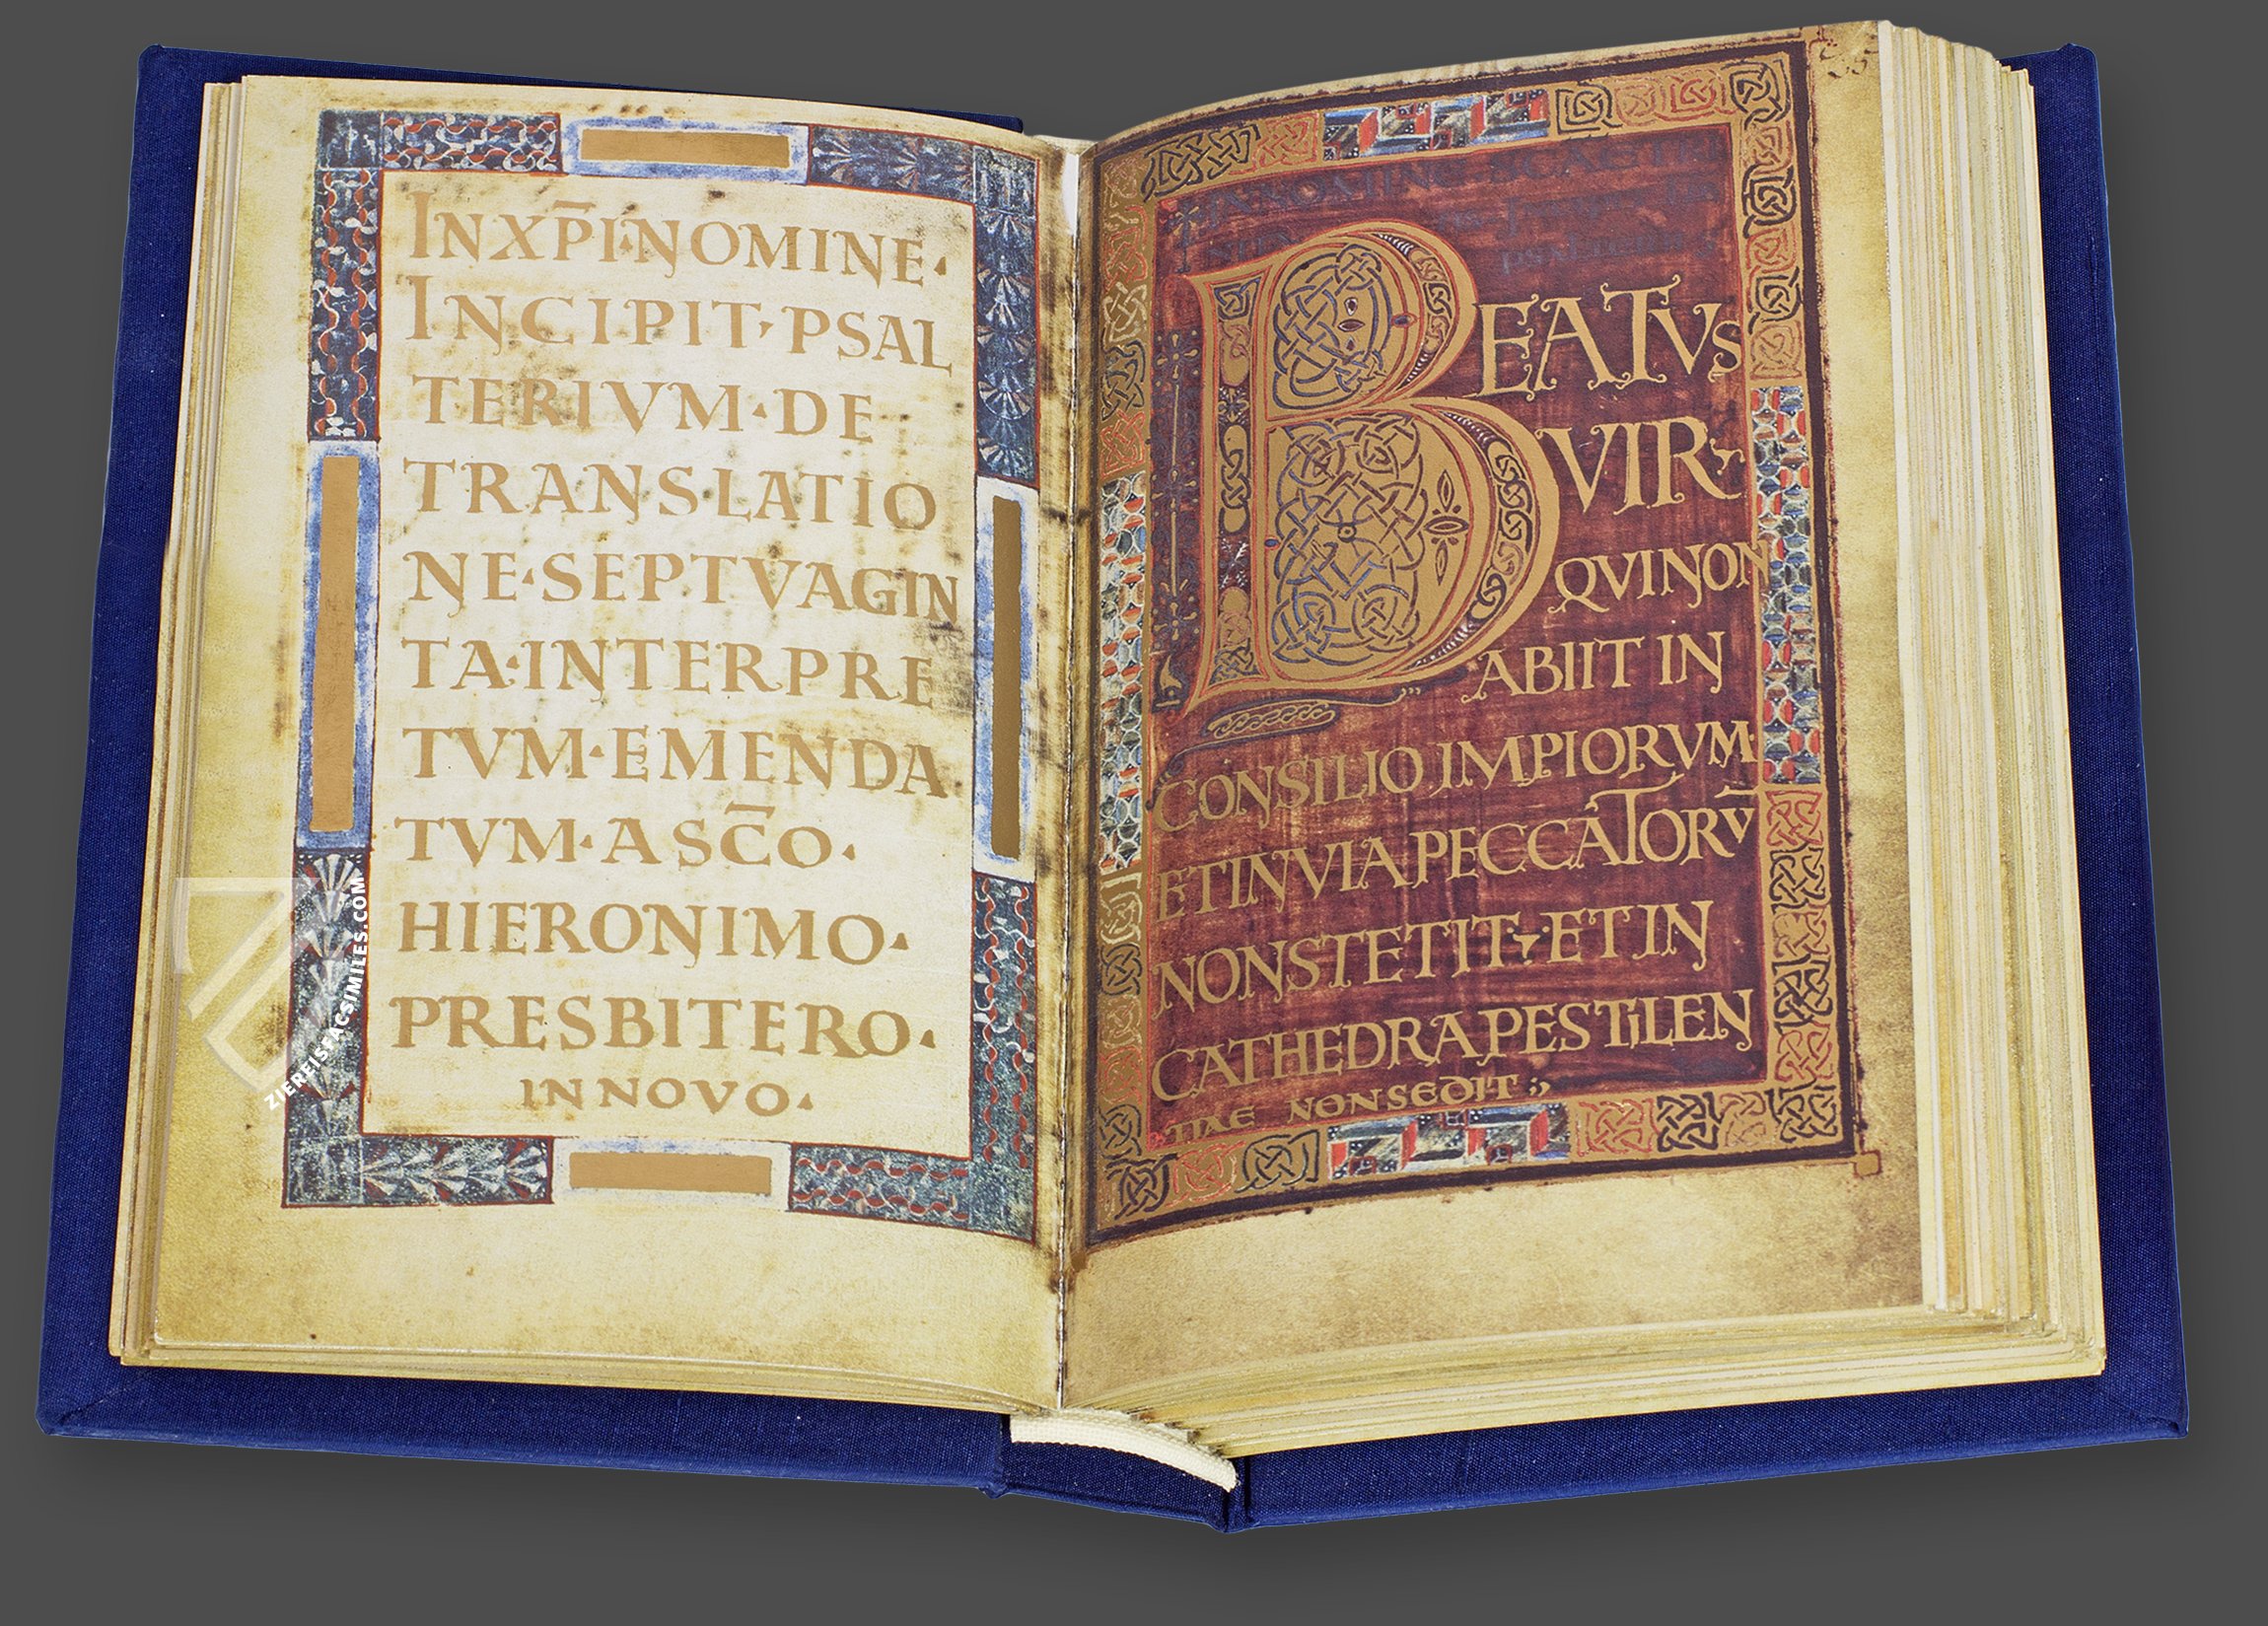 INXP̄I·NOMINE·
INCIPIT·PSAL
TERIVM·DE·
TRANSLATIO
NE·SEPTVAGIN
TA·INTERPRE
TVM·EMENDA
TVM·A SC̄O·
HIERONIMO·
PRESBITERO·
IN NOVO·
ZIEREISFACSIMILES.COM
BEATVS
VIR·
QVINON
ABIIT IN
CONSILIO IMPIORVM·
ETINVIAPECCATORV̄
NONSTETIT·ETIN
CATHEDRAPESTILEN
TIAE NONSEDIT:,